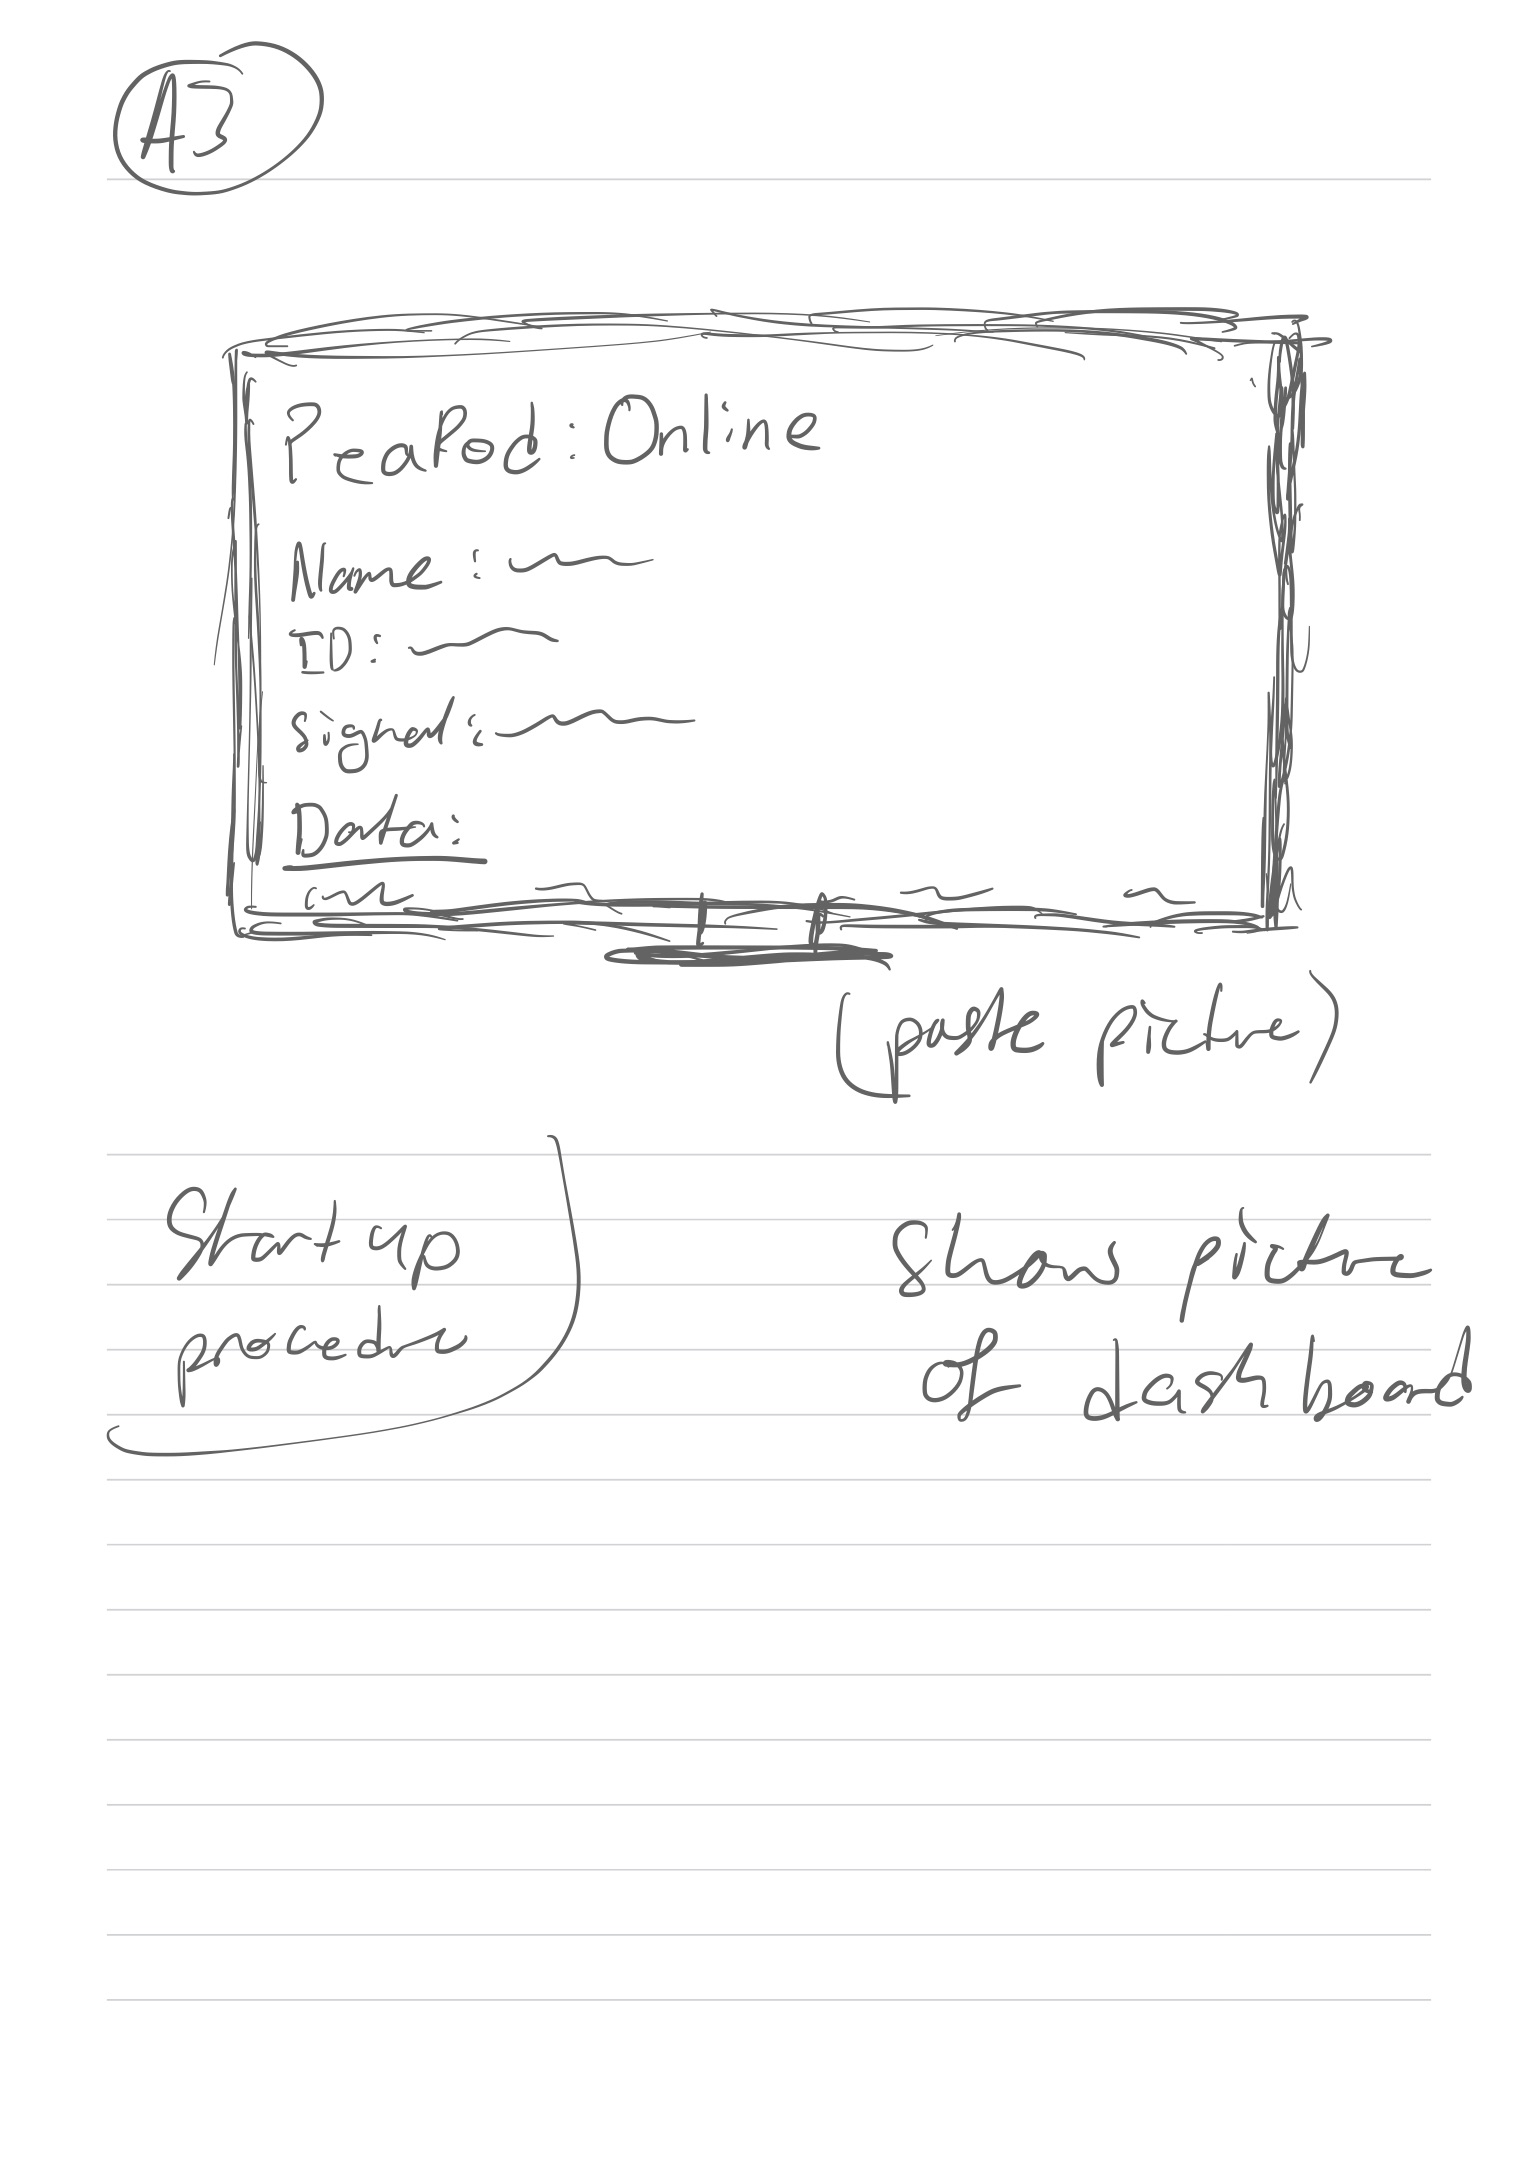 A3
PeaPod: Online
Name:
ID:
Signed:
Data:
(paste picture)
Start up
procedure
Show picture
of dashboard